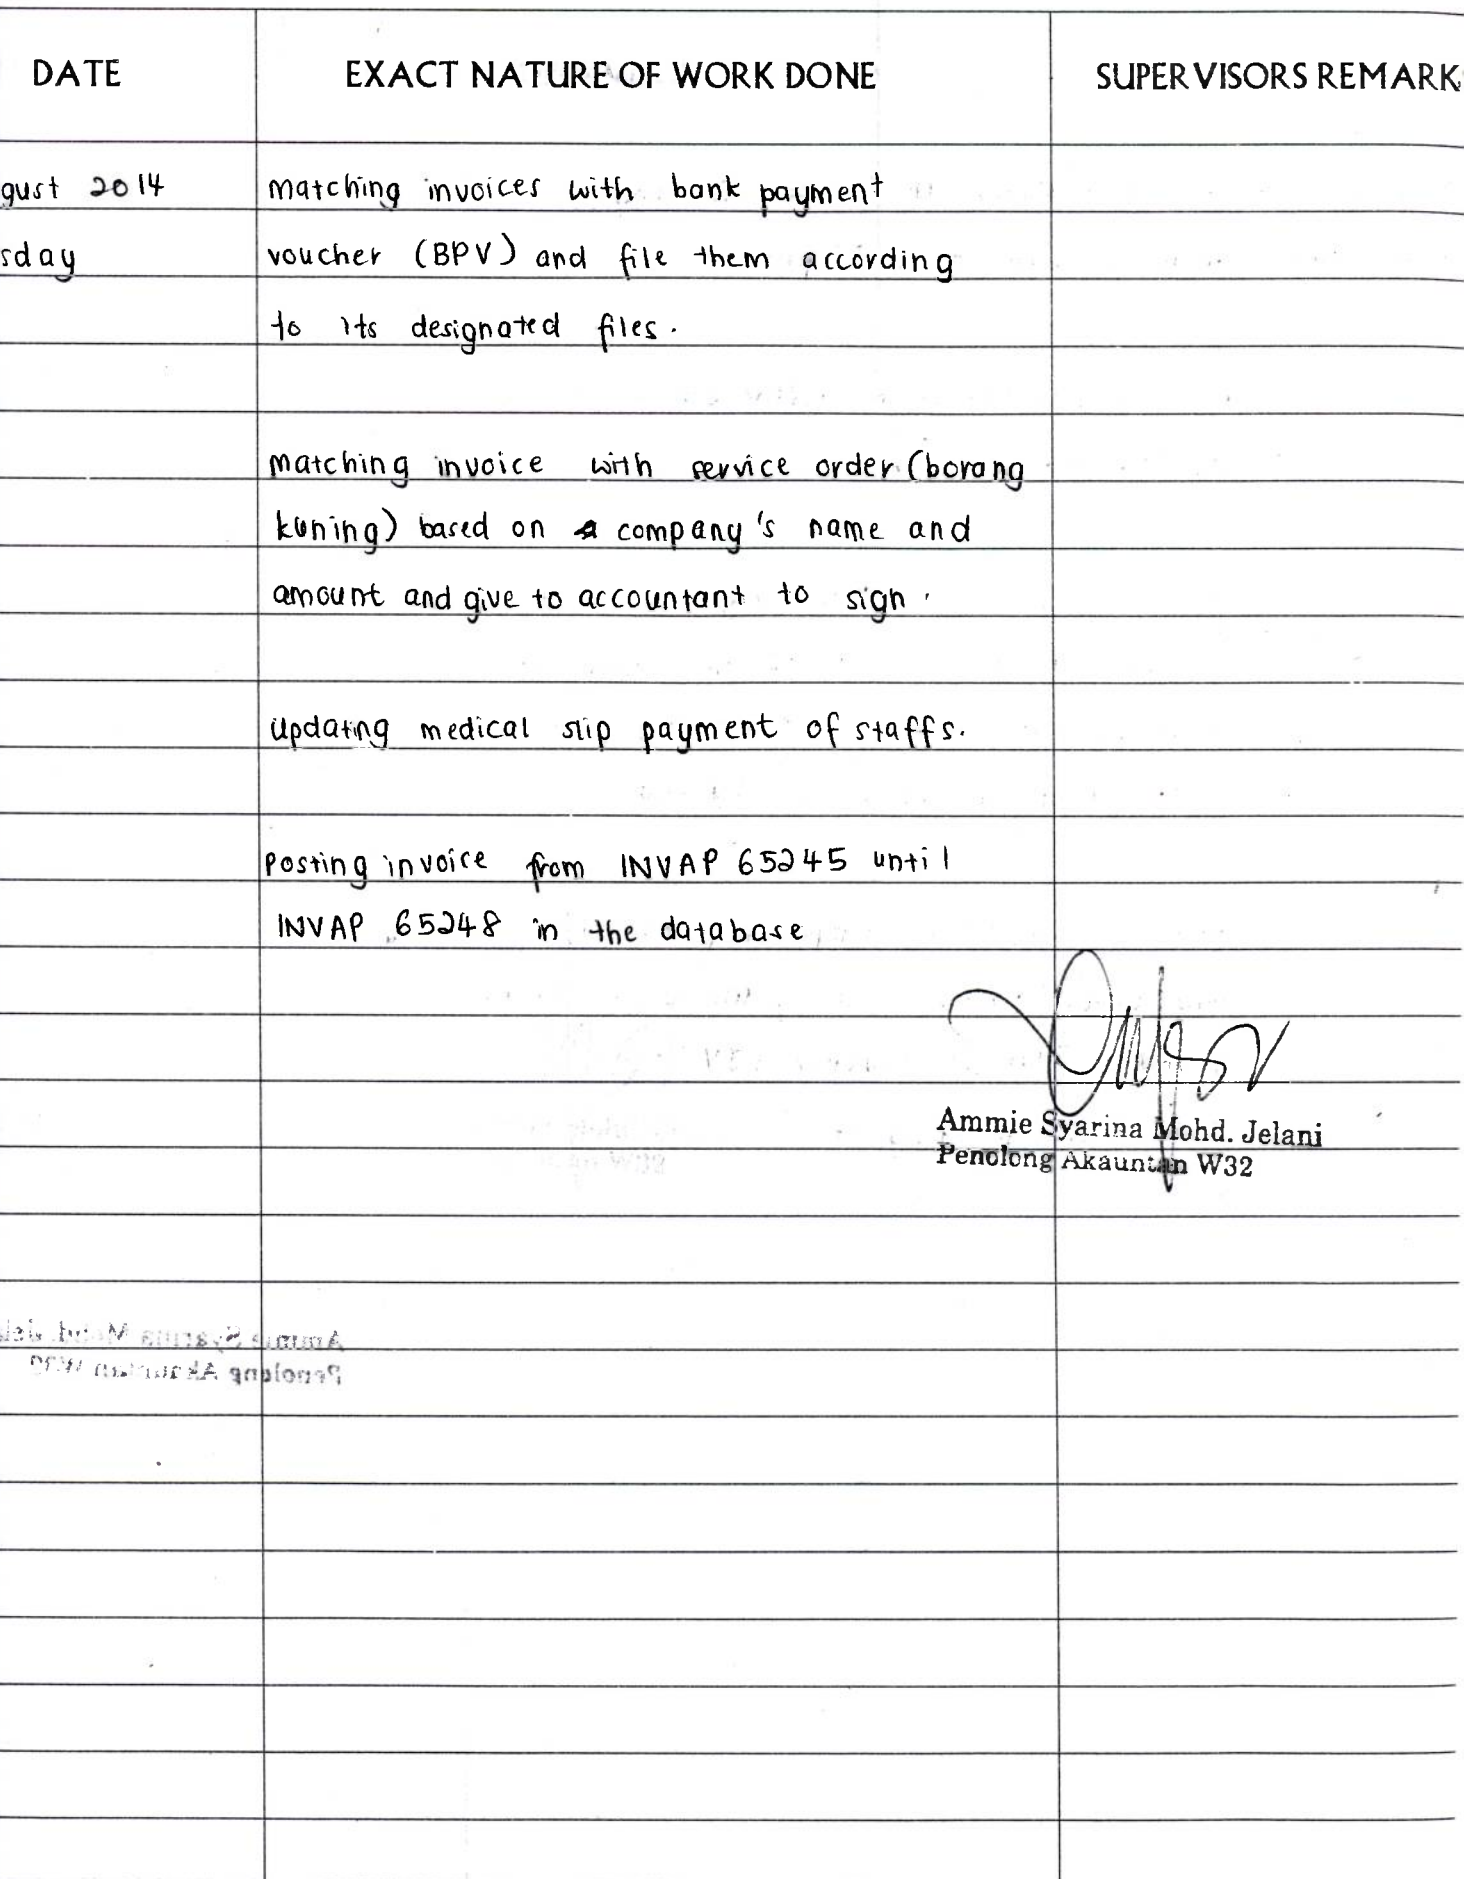 DATE EXACT NATURE OF WORK DONE SUPERVISORS REMARK
gust 2014 matching invoices with bank payment
sday voucher (BPV) and file them according
to its designated files.
matching invoice with service order (borang
kuning) based on a company's name and
amount and give to accountant to sign.
updating medical slip payment of staffs.
posting invoice from INVAP 65245 until
INVAP 65248 in the database
Ammie Syarina Mohd. Jelani
Penolong Akauntan W32
Ammie Syarina Mohd. Jela
Penolong Akauntan W32